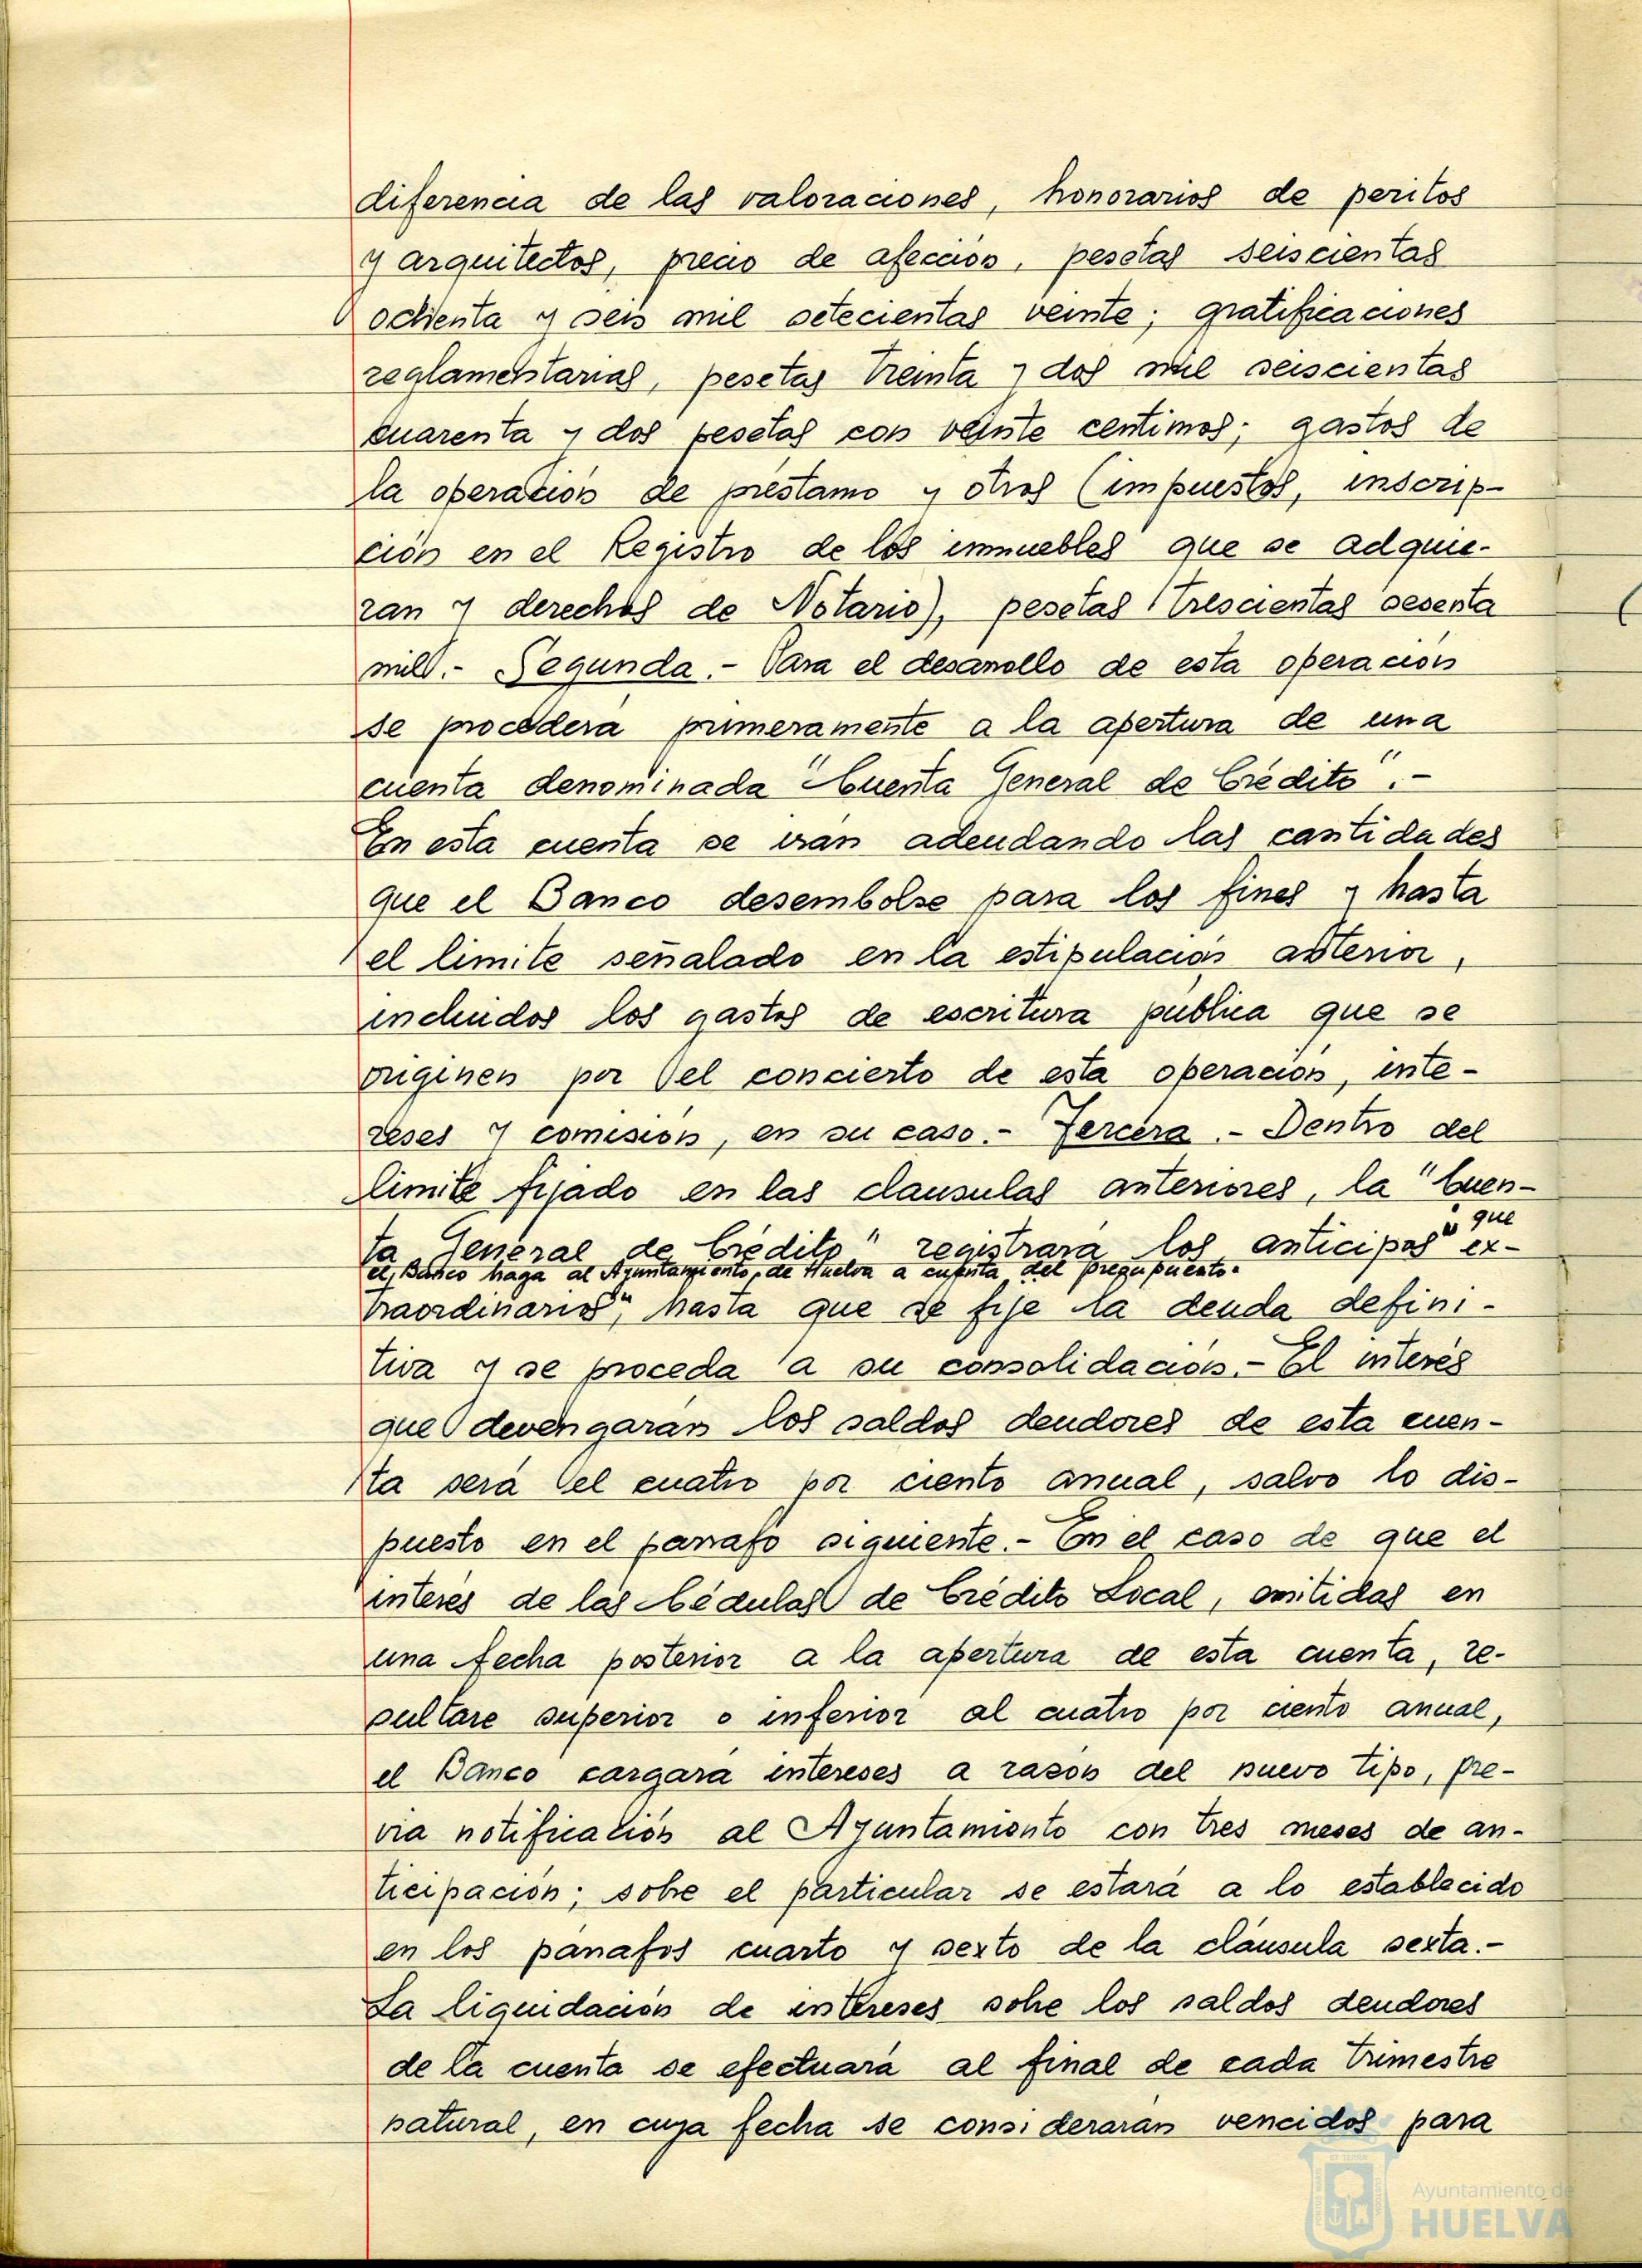 diferencia de las valoraciones, honorarios de peritos
y arquitectos, precio de afección, pesetas seiscientas
ochenta y seis mil setecientas veinte; gratificaciones
reglamentarias, pesetas treinta y dos mil seiscientas
cuarenta y dos pesetas con veinte centimos; gastos de
la operación de préstamo y otros (impuestos, inscrip-
ción en el Registro de los inmuebles que se adquie-
ran y derechos de Notario), pesetas trescientas sesenta
mil.- Segunda.- Para el desarrollo de esta operación
se procederá primeramente a la apertura de una
cuenta denominada "Cuenta General de Crédito".-
En esta cuenta se irán adeudando las cantidades
que el Banco desembolse para los fines y hasta
el limite señalado en la estipulación anterior,
incluidos los gastos de escritura pública que se
originen por el concierto de esta operación, inte-
reses y comisión, en su caso.- Tercera.- Dentro del
limite fijado en las clausulas anteriores, la "Cuen-
ta General de Crédito" registrará los anticipos" ex-
" que
el Banco haga al Ayuntamiento de Huelva a cuenta del presupuesto-
traordinario", hasta que se fije la deuda defini-
tiva y se proceda a su consolidación.- El interés
que devengarán los saldos deudores de esta cuen-
ta será el cuatro por ciento anual, salvo lo dis-
puesto en el parrafo siguiente.- En el caso de que el
interés de las Cédulas de Crédito Local, emitidas en
una fecha posterior a la apertura de esta cuenta, re-
sultare superior o inferior al cuatro por ciento anual,
el Banco cargará intereses a razón del nuevo tipo, pre-
via notificación al Ayuntamiento con tres meses de an-
ticipación; sobre el particular se estará a lo establecido
en los párrafos cuarto y sexto de la cláusula sexta.-
La liquidación de intereses sobre los saldos deudores
de la cuenta se efectuará al final de cada trimestre
natural, en cuya fecha se considerarán vencidos para
Ayuntamiento de
HUELVA